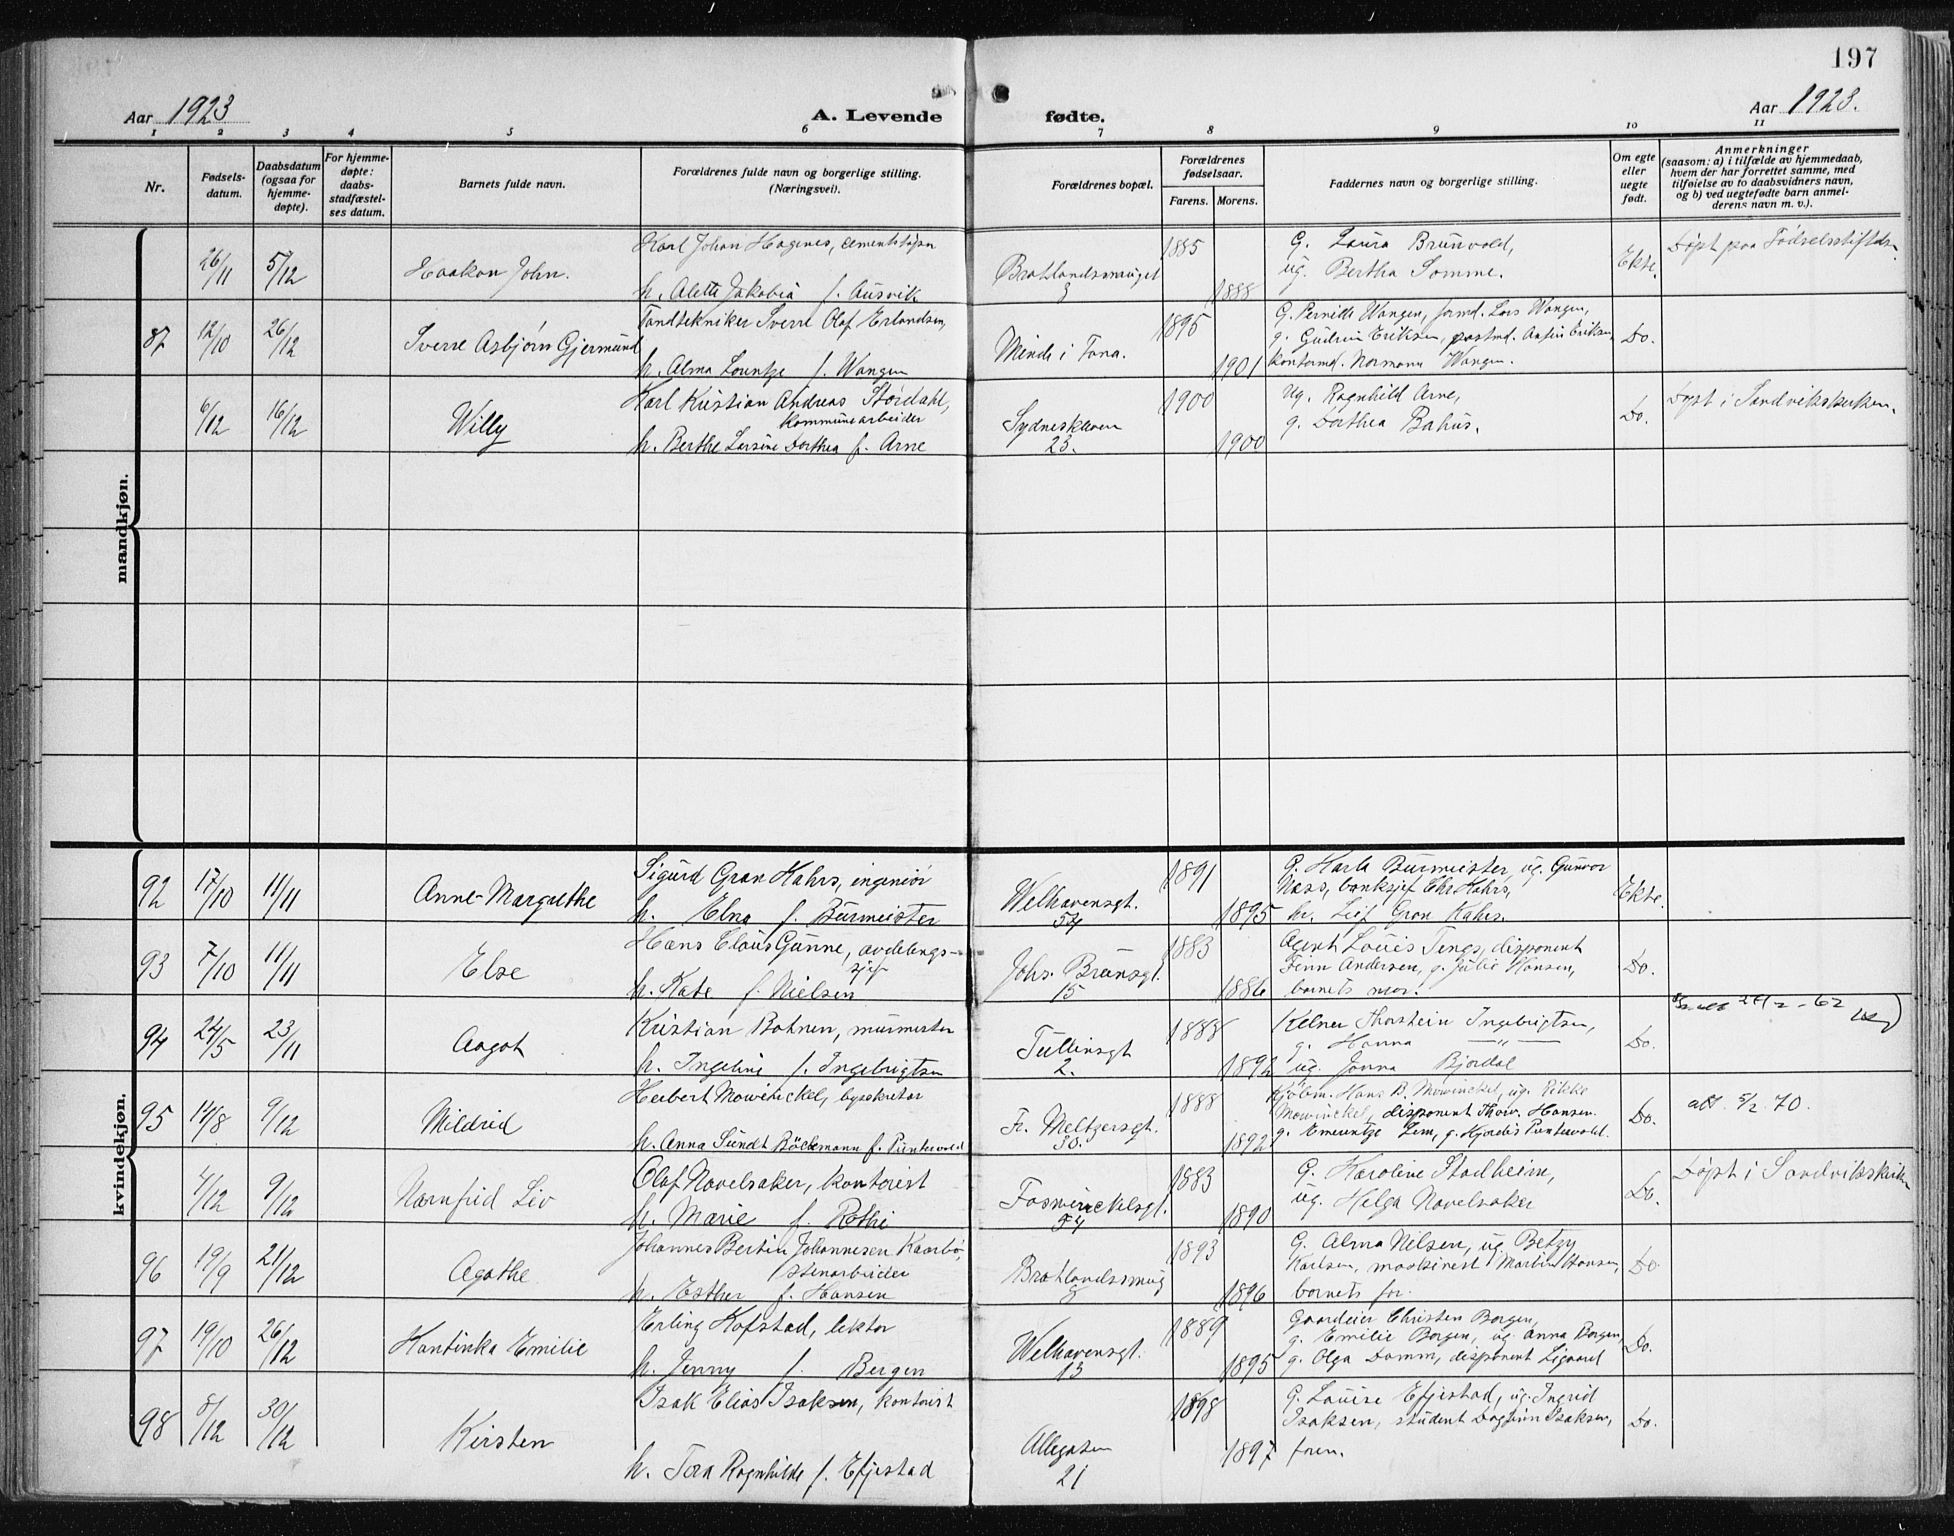 197
Aar 1923
A. Levende fødte.
Aar 1923.
1 2 3 4 5 6 7 8 9 10 11
Nr.
Fødsels-
datum.
Daabsdatum
(ogsaa for
hjemme-
døpte).
For hjemme-
døpte:
daabs-
stadfæstel-
ses datum.
Barnets fulde navn.
Forældrenes fulde navn og borgerlige stilling.
(Næringsvei).
Forældrenes bopæl.
Forældrenes
fødselsaar.
Farens. Morens.
Faddernes navn og borgerlige stilling.
Om egte
eller
uegte
født.
Anmerkninger
(saasom: a) i tilfælde av hjemmedaab,
hvem der har forrettet samme, med
tilføielse av to daabsvidners navn,
og b) ved uegtefødte barn anmel-
derens navn m. v.).
mandkjøn.
26/11 5/12 Haakon John.
Karl Johan Hagenes,
h. Alette Jakobia f. Ausvik
Bratlandsmuget
3
1885 1888
G. Laura Brunvold,
ug. Bertha Somme.
Ekte.
Døpt paa Fødselsstiftelsen
87 12/10 26/12 Sverre Asbjørn Gjermund
Tandtekniker Sverre Olaf Erlandsen,
h. Alma Lorentze f. Wangen
Minde i Fana.
1895 1901
G. Pernille Wangen, formd. Lars Wangen,
g. Gudrun Eriksen, postmd. Eriksen,
kontormd. Normann Wangen.
Do.
6/12 16/12 Willy
Karl Kristian Andreas Størdahl,
kommunearbeider
h. Berthe Larsine Dorthea f. Arne
Sydneskleven
23.
1900 1900
Ug. Ragnhild Arne,
g. Dorthea Bahus.
Do.
Døpt i Sandvikskirken.
kvindekjøn.
92 17/10 11/11 Anne-Margrethe
Sigurd Gran Kahrs, ingeniør
h. Elna f. Burmeister
Welhavensgt.
54
1891 1895
G. Harla Burmeister, ug. Gunvor
Næss, banksjef Chr. Kahrs,
hr. Leif Gran Kahrs.
Ekte.
93 7/10 11/11 Else
Hans Claus Gunne, avdelings-
sjef
h. Kate f. Nielsen
Johs. Brunsgt.
15
1883 1886
Agent Louis Tengs, disponent
Finn Andersen, g. Julie Hansen,
barnets mor.
Do.
94 24/5 23/11 Aagot
Kristian Bohnen, murmester
h. Ingeline f. Ingebrigtsen
Tullinsgt
2.
1888 1892
Kelner Thorstein Ingebrigtsen,
g. Hanna — " —
ug. Jonna Bjordal
Do.
95 14/8 9/12 Mildrid
Herbert Mowinckel, bysekretær
h. Anna Sundt Böckmann f. Puntervold
Fr. Meltzersgt.
30.
1888 1892
Kjøbm. Hans B. Mowinckel, ug. Rikke
Mowinckel, disponent Thorv. Hansen.
g. Emerentze Lem, g. Hjørdis Puntervold.
Do.
att. 5/2. 70.
4/12 9/12 Narnfrid Liv
Olaf Navelsaker, kontorist
h. Marie f. Rothe
Foswinckelsgt.
54
1883 1890
G. Karoline Stadheim,
ug. Helga Navelsaker
Do.
Døpt i Sandvikskirken
96 19/9 21/12 Agathe
Johannes Bertin Johannesen Kaarbø,
stenarbeider
h. Esther f. Hansen
Bratlandssmug
8
1893 1896
G. Alma Nilsen, ug. Betzy
Karlsen, maskinest Martin Hansen,
barnets far.
Do.
97 19/10 26/12 Kantinka Emilie
Erling Kofstad, lektor
h. Jenny f. Bergen
Welhavensgt.
13
1889 1895
Gaardeier Christen Borgen,
g. Emilie Borgen, ug. Anna Borgen,
g. Olga Damm, disponent Sigvard
Do.
98 8/12 30/12 Kirsten
Isak Elias Isaksen, kontorist
h. Tora Ragnhilde f. Efjestad
Allegaten
21
1898 1897
G. Louise Efjestad, ug. Ingrid
Isaksen, student Dagfinn Isaksen,
faren.
Do.